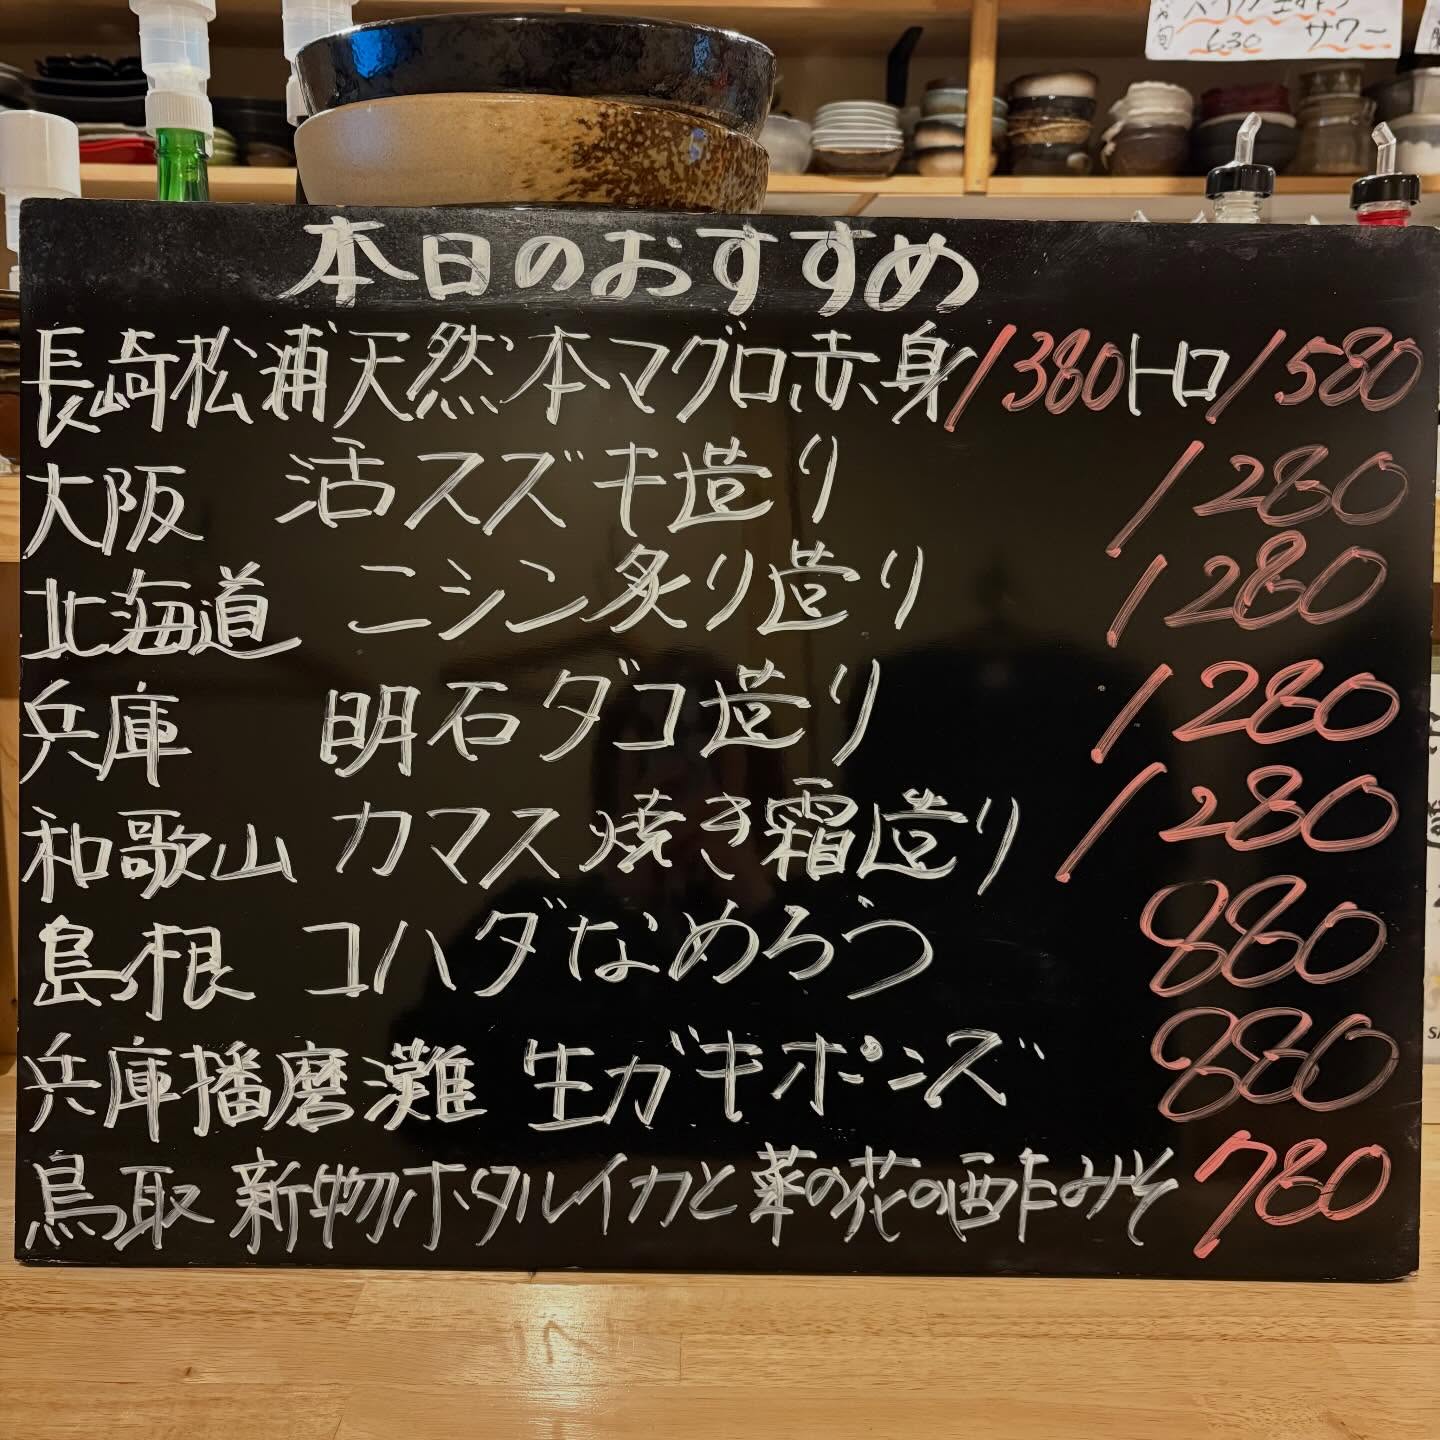 630 サワー
本日のおすすめ
長崎松浦天然本マグロ赤身1380トロ1580
大阪 活スズキ造り 1280
北海道 ニシン炙り造り 1280
兵庫 明石ダコ造り 1280
和歌山 カマス焼き霜造り 1280
島根 コハダなめろう 880
兵庫播磨灘 生ガキポンズ 880
鳥取 新物ホタルイカと菜の花の酢みそ 780